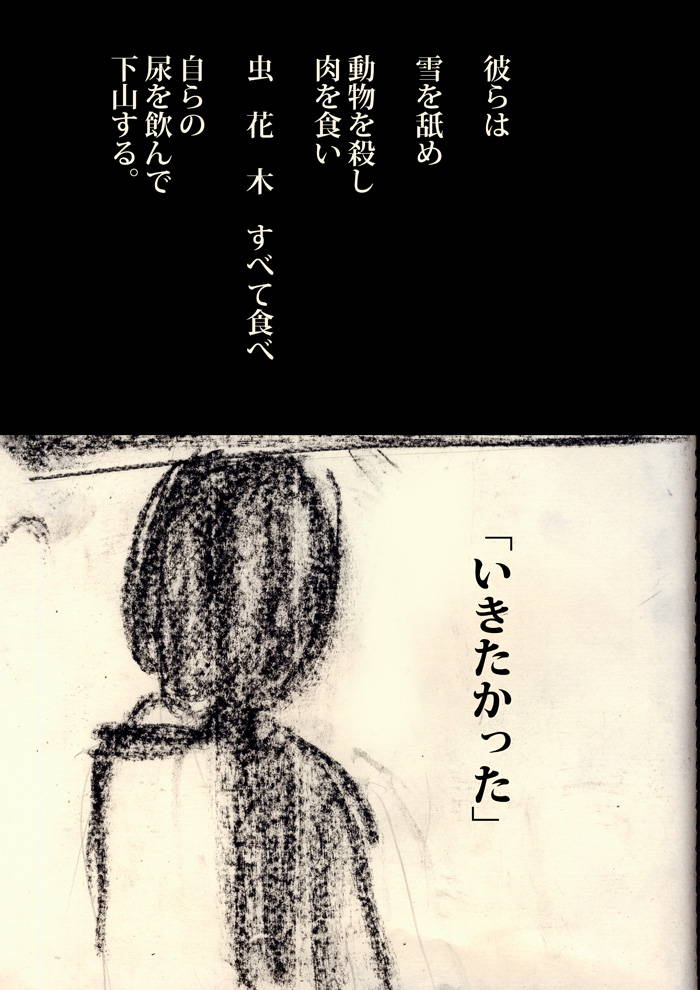 彼らは
雪を舐め
動物を殺し
肉を食い
虫　花　木　すべて食べ
自らの
尿を飲んで
下山する。
「いきたかった」